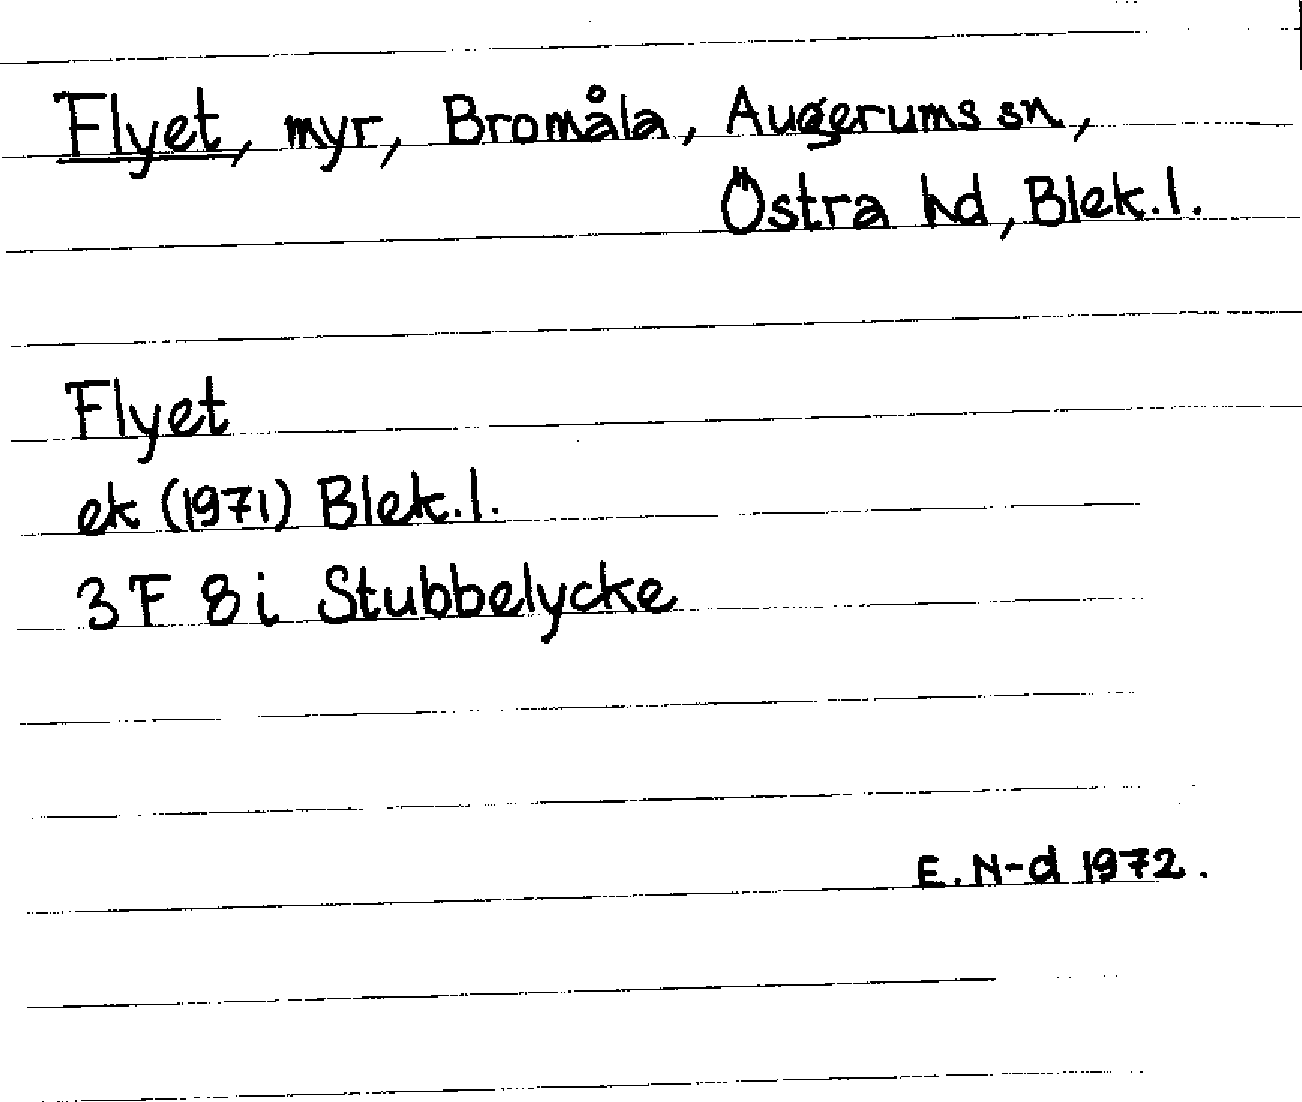 Flyet, myr, Bromåla, Augerums sn,
Östra hd, Blek. l.
Flyet
ek (1971) Blek. l.
3 F 8 i Stubbelycke
E. N-d 1972.